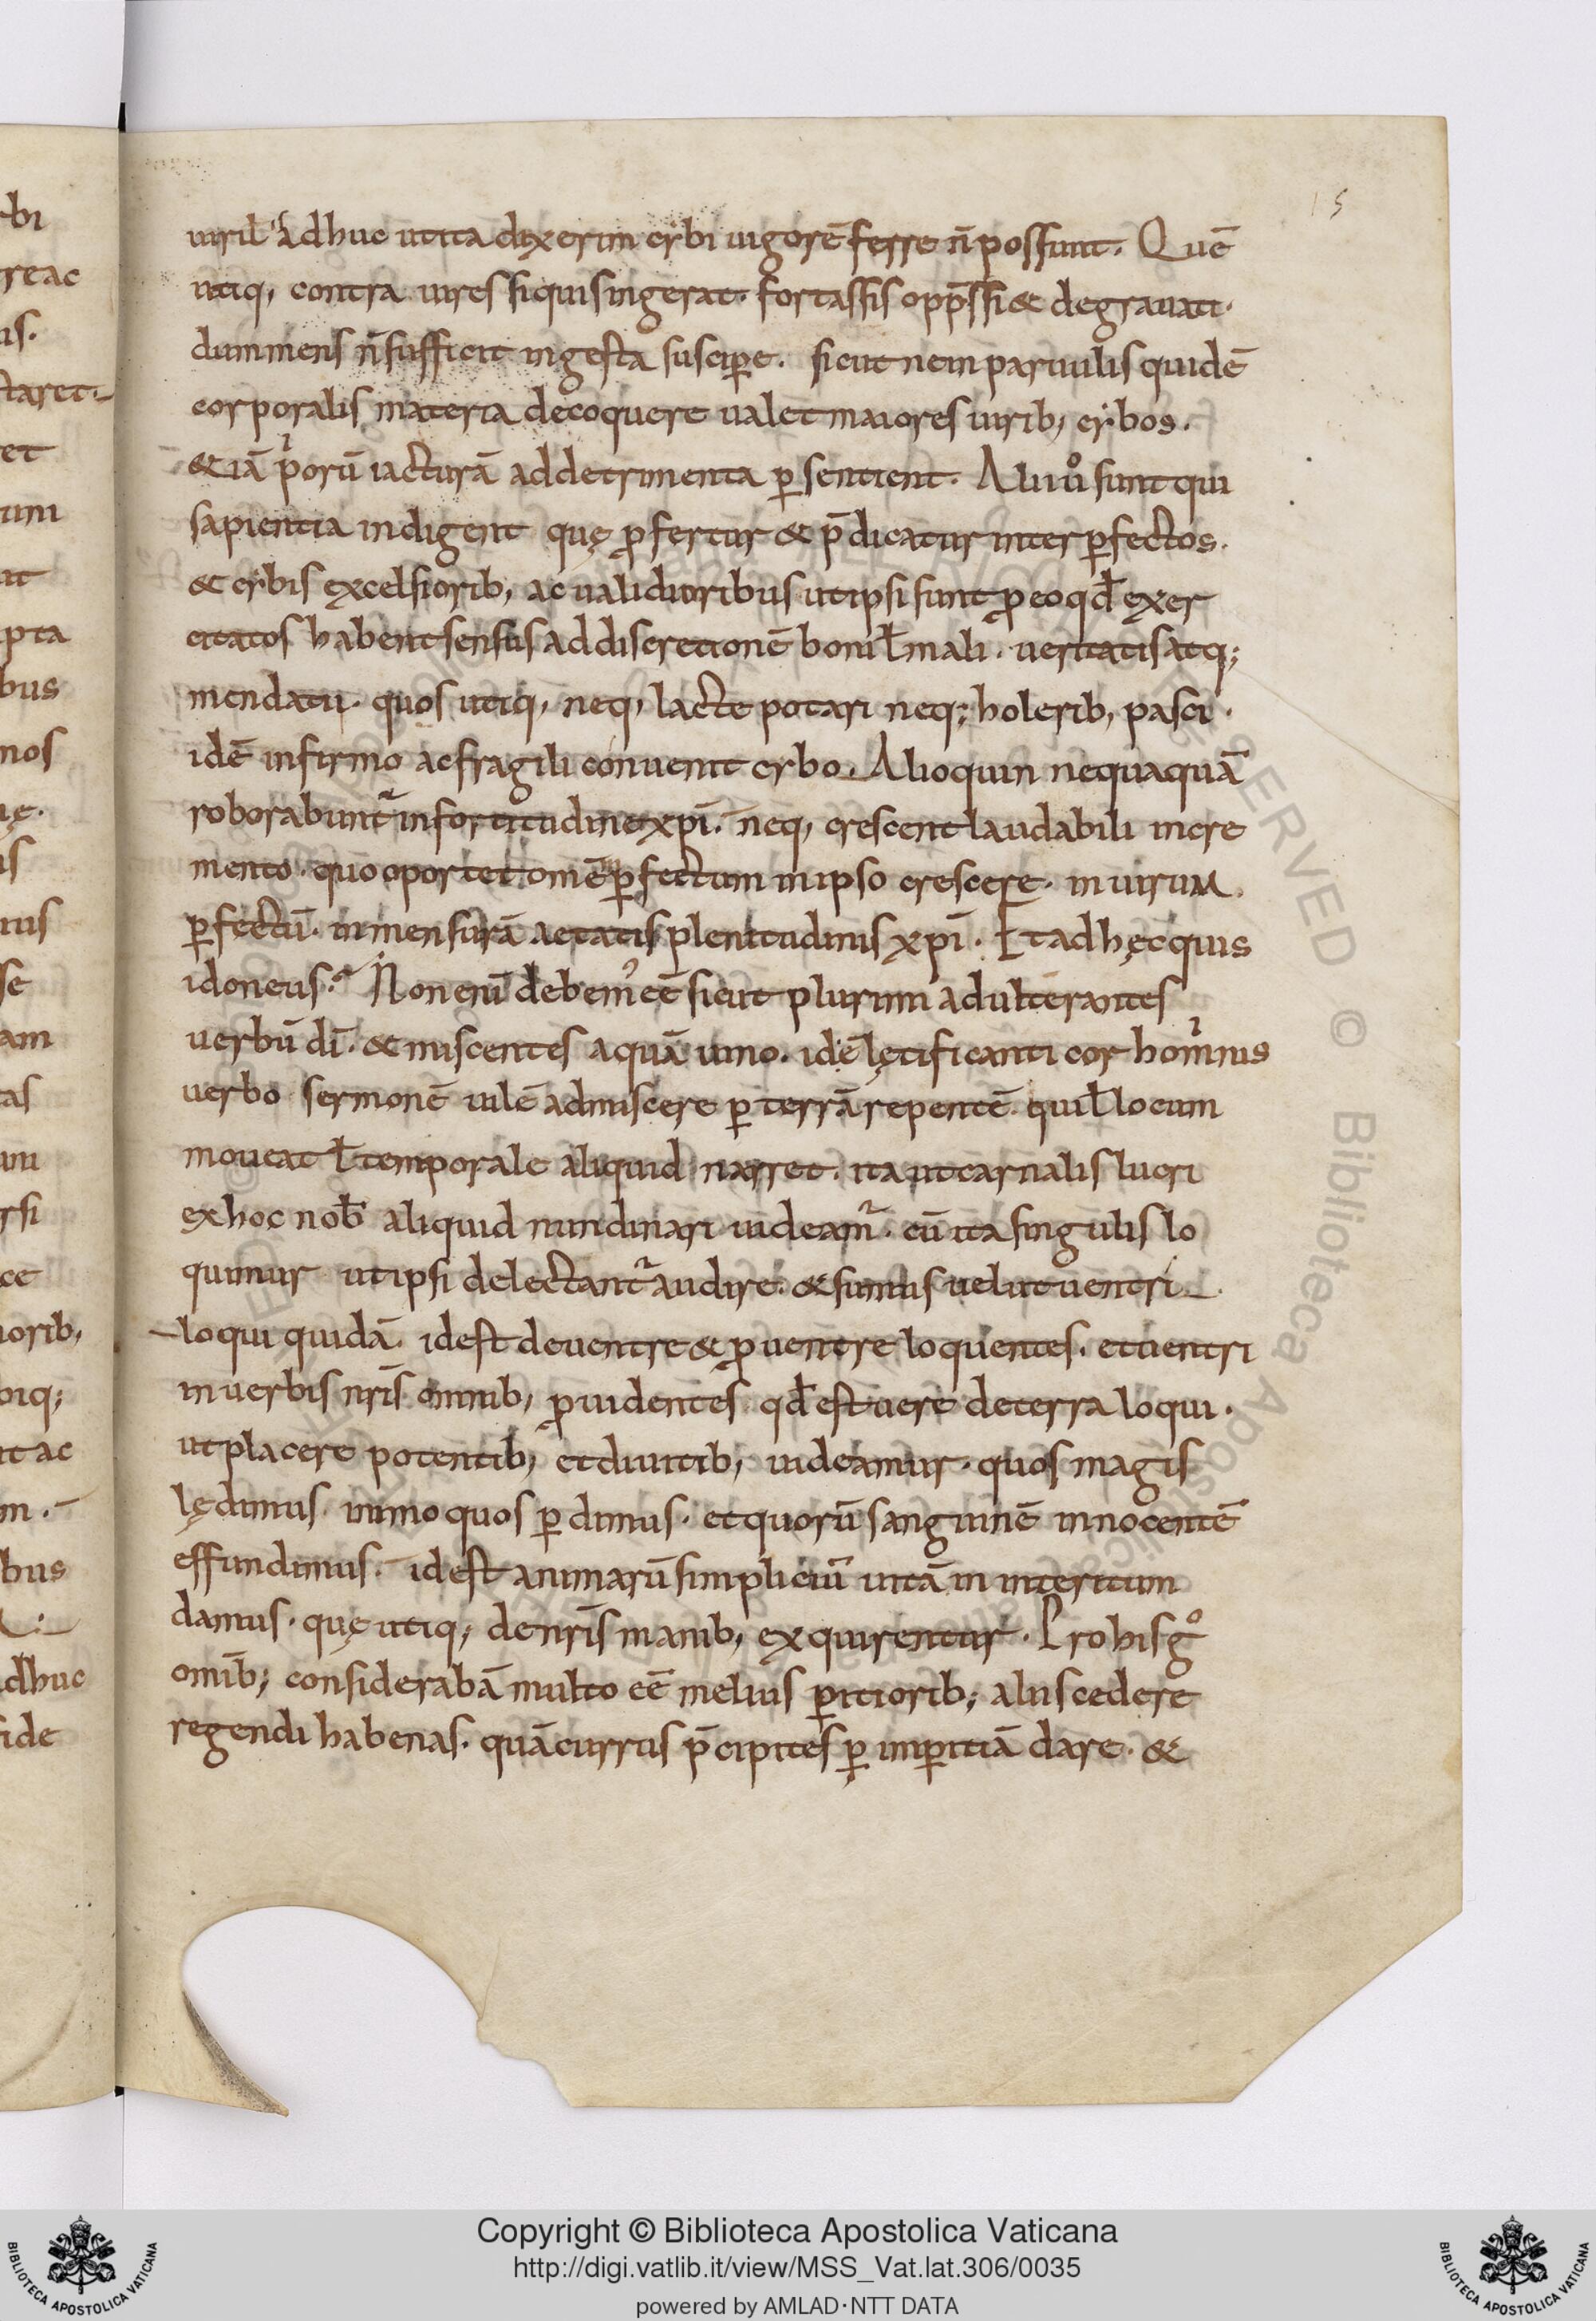 15
uiril adhuc ut ita dixerim cybi uigorē ferre n̄ possunt. Quē
utiq, contra uires siquis ingerat. fortassis opp̄ssi & degrauati.
dum mens n̄ sufficit ingesta suscip̱e. sicut nem paruulis quidē
corporalis materia decoquere ualet maiores uirib, cybos.
& iā pⁱorū iacturā ad detrimenta ꝑsentient. Alii ůo sunt qui
sapientia indigent quę ꝓfertur & p̄dicatur inter ꝑfectos.
& cybis excelsiorib, ac ualidioribus ut ipsi sunt ꝓ eo qđ exer
citatos habent sensus ad discretionē boni ł mali. ueritatis atq;
mendatii. quos utiq, neq, lacte potari neq; holerib, pasci.
idē infirmo ac fragili conuenit cybo. Alioquin nequaquā
roborabunt᷑ in fortitudine xp̄i. neq, crescent laudabili incre
mento. quo oportet omē ꝑfectum in ipso crescere. in uirum
ꝑfectū. in mensurā aetatis plenitudinis xp̄i. Et ad hęc quis
idoneus? Non eni᷄ debem᷒ eē sicut plurimi adulterantes
uerbū dī. & miscentes aquā uino. idē lętificanti cor homīnis
uerbo sermonē uilē admiscere ꝑ terrā repentē. qui ł locum
moueat ł temporale aliquid narret. ita ut carnalis lucri
ex hoc nob̄ aliquid nundinari uideam᷑. cū ita singulis lo
quimur ut ipsi delectant᷑ audire. & sumus uelut uentri
loqui quidā. id est de uentre & ꝓ uentre loquentes. et uentri
in uerbis nr̄is omnib, ꝓuidentes qđ est uere de terra loqui.
ut placere potentib, et diuitib, uideamur. quos magis
lędimus. immo quos ꝑdimus. et quorū sanguinē innocentē
effundimus. id est animarū simpliciū uitā in interitum
damus. quę utiq; de nr̄is manib, exquirentur. Pro his gͦ
omib; considerabā multo eē melius ꝑitiorib; aliis cedere
regendi habenas. quā currus p̄cipites ꝑ imꝑitiā dare. &
rbi
reac
us.
taret.
et
um
ut
pta
bus
nos
ię.
is
rus
se
am
tas
um
rsi
ce
iorib,
biq;
ut ac
m.
bus
dhuc
ide
Copyright © Biblioteca Apostolica Vaticana
http://digi.vatlib.it/view/MSS_Vat.lat.306/0035
powered by AMLAD·NTT DATA
BIBLIOTECA APOSTOLICA VATICANA
BIBLIOTECA APOSTOLICA VATICANA